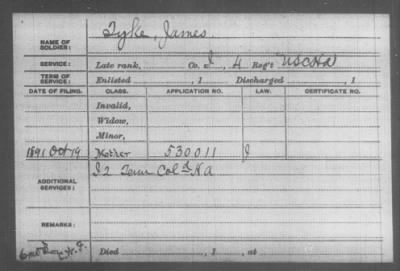 NAME OF SOLDIER: Tyke, James.
SERVICE: Late rank, Co. I, 4 Reg't USCHA
TERM OF SERVICE: Enlisted , 1 Discharged , 1
DATE OF FILING. CLASS. APPLICATION NO. LAW. CERTIFICATE NO.
Invalid,
Widow,
Minor,
1891 Oct 19 Mother 530011 J
ADDITIONAL SERVICES: I 2 Tenn Col'd HA
REMARKS:
Died , 1 , at